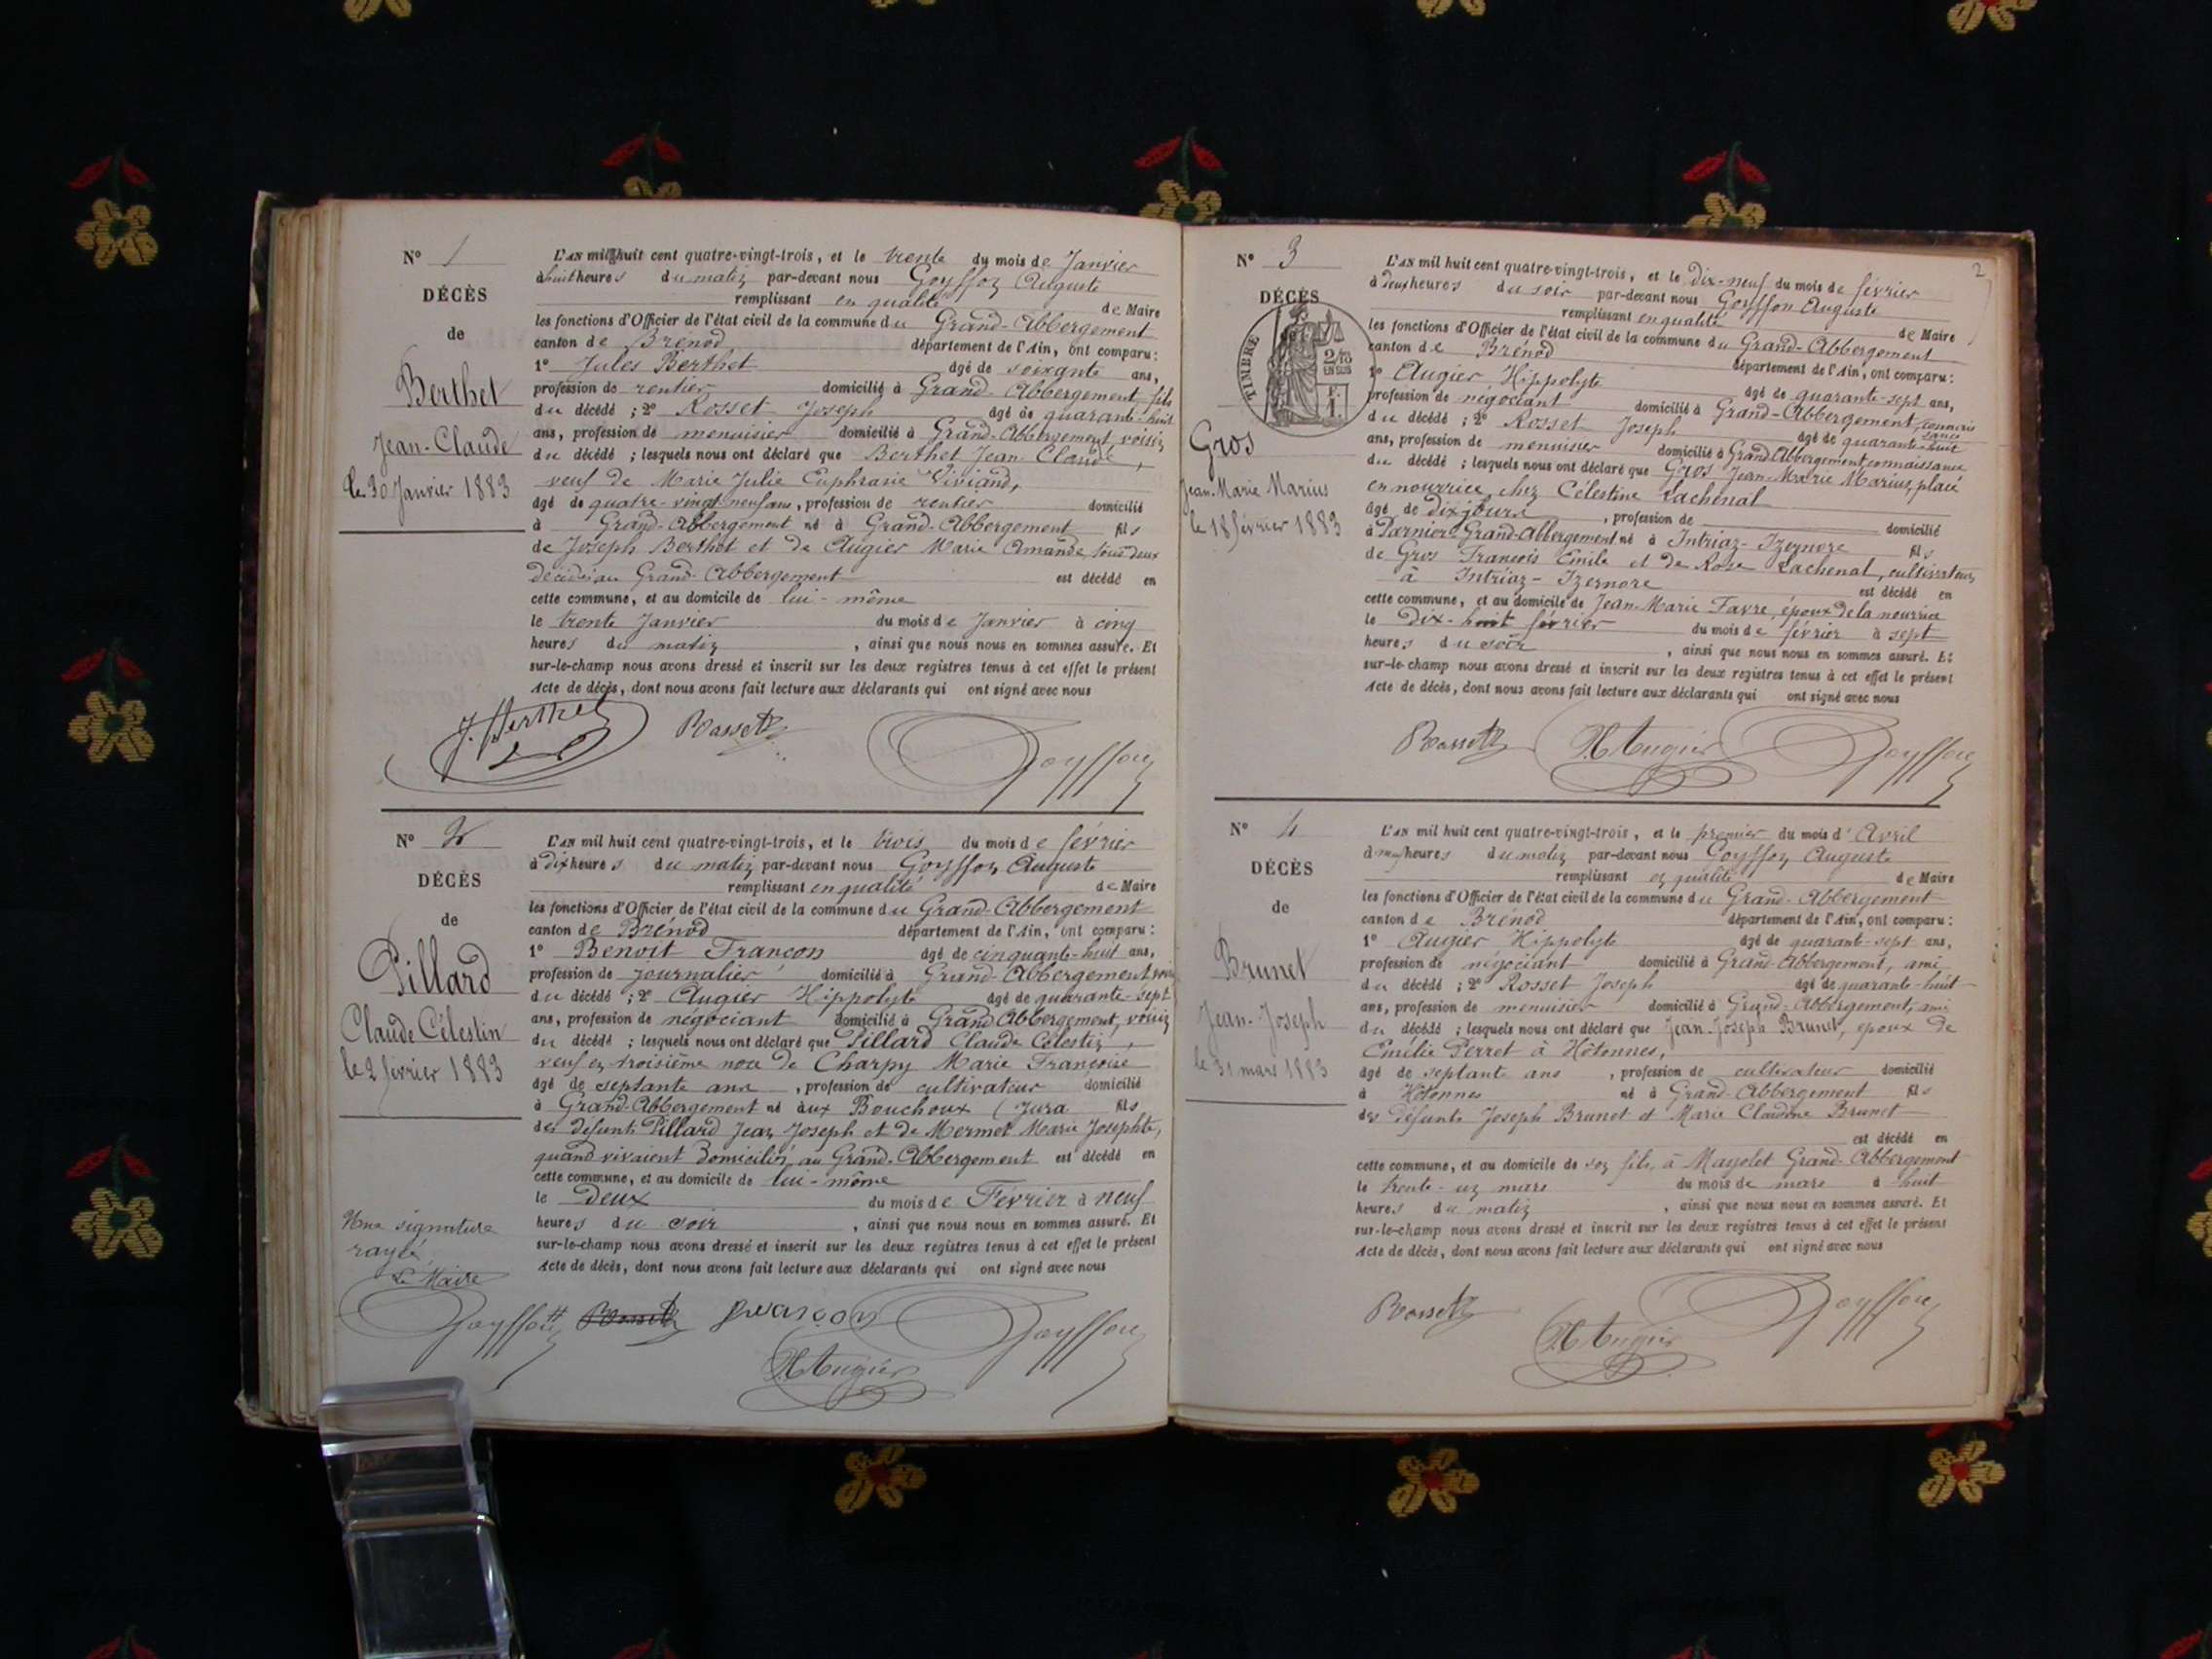 N° 1
DÉCÈS
de
Berthet
Jean-Claude
le 30 Janvier 1883
L'AN mil huit cent quatre-vingt-trois, et le trente du mois de Janvier
à huit heures du matin par-devant nous Goyffon Auguste
remplissant en qualité de Maire
les fonctions d'Officier de l'état civil de la commune du Grand-Abbergement
canton de Brénod département de l'Ain, ont comparu :
1° Jules Berthet âgé de soixante ans,
profession de rentier domicilié à Grand-Abbergement, fils
du décédé ; 2° Rosset Joseph âgé de quarante-huit
ans, profession de menuisier domicilié à Grand-Abbergement, voisin
du décédé ; lesquels nous ont déclaré que Berthet Jean Claude,
veuf de Marie Julie Euphrasie Viviand,
âgé de quatre-vingt-neuf ans, profession de rentier domicilié
à Grand-Abbergement né à Grand-Abbergement fils
de Joseph Berthet et de Augier Marie Amande tous deux
décédés au Grand-Abbergement est décédé en
cette commune, et au domicile de lui-même
le trente Janvier du mois de Janvier à cinq
heures du matin, ainsi que nous nous en sommes assuré. Et
sur-le-champ nous avons dressé et inscrit sur les deux registres tenus à cet effet le présent
Acte de décès, dont nous avons fait lecture aux déclarants qui ont signé avec nous
J. Berthet Rosset Goyffon
N° 2
DÉCÈS
de
Pillard
Claude Célestin
le 2 février 1883
L'AN mil huit cent quatre-vingt-trois, et le trois du mois de février
à dix heures du matin par-devant nous Goyffon Auguste
remplissant en qualité de Maire
les fonctions d'Officier de l'état civil de la commune du Grand-Abbergement
canton de Brénod département de l'Ain, ont comparu :
1° Benoit Françon âgé de cinquante-huit ans,
profession de journalier domicilié à Grand-Abbergement,
du décédé ; 2° Augier Hippolyte âgé de quarante-sept
ans, profession de négociant domicilié à Grand Abbergement, voisin
du décédé ; lesquels nous ont déclaré que Pillard Claude Célestin,
veuf en troisième noce de Charpy Marie Françoise
âgé de septante ans, profession de cultivateur domicilié
à Grand-Abbergement né aux Bouchoux (Jura fils
des défunts Pillard Jean Joseph et de Mermet Marie Josephte,
quand vivaient domiciliés au Grand-Abbergement est décédé en
cette commune, et au domicile de lui-même
le Deux du mois de Février à neuf
heures du soir, ainsi que nous nous en sommes assuré. Et
sur-le-champ nous avons dressé et inscrit sur les deux registres tenus à cet effet le présent
Acte de décès, dont nous avons fait lecture aux déclarants qui ont signé avec nous
Une signature
rayée
Le Maire
Goyffon Rosset françon Goyffon
H Augier
2
N° 3
DÉCÈS
TIMBRE
2/10
EN SUS
F.
1.
Gros
Jean-Marie Marius
le 18 février 1883
L'AN mil huit cent quatre-vingt-trois, et le dix-neuf du mois de février
à deux heures du soir par-devant nous Goyffon Auguste
remplissant en qualité de Maire
les fonctions d'Officier de l'état civil de la commune du Grand-Abbergement
canton de Brénod département de l'Ain, ont comparu :
1° Augier Hippolyte âgé de quarante-sept ans,
profession de négociant domicilié à Grand-Abbergement, connaissance
du décédé ; 2° Rosset Joseph âgé de quarante-huit
ans, profession de menuisier domicilié à Grand Abbergement, connaissance
du décédé ; lesquels nous ont déclaré que Gros Jean-Marie Marius, placé
en nourrice chez Célestine Lachenal
âgé de dix jours, profession de domicilié
à Grand-Abbergement né à Intriaz-Izernore fils
de Gros François Emile et de Rose Lachenal, cultivateurs
à Intriaz-Izernore est décédé en
cette commune, et au domicile de Jean-Marie Favre, époux de la nourrice
le Dix-huit février du mois de février à sept
heures du soir, ainsi que nous nous en sommes assuré. Et
sur-le-champ nous avons dressé et inscrit sur les deux registres tenus à cet effet le présent
Acte de décès, dont nous avons fait lecture aux déclarants qui ont signé avec nous
Rosset H Augier Goyffon
N° 4
DÉCÈS
de
Brunet
Jean-Joseph
le 31 mars 1883
L'AN mil huit cent quatre-vingt-trois, et le premier du mois d'Avril
à heures du matin par-devant nous Goyffon Auguste
remplissant en qualité de Maire
les fonctions d'Officier de l'état civil de la commune du Grand-Abbergement
canton de Brénod département de l'Ain, ont comparu :
1° Augier Hippolyte âgé de quarante-sept ans,
profession de négociant domicilié à Grand-Abbergement, ami
du décédé ; 2° Rosset Joseph âgé de quarante-huit
ans, profession de menuisier domicilié à Grand-Abbergement, ami
du décédé ; lesquels nous ont déclaré que Jean-Joseph Brunet, époux de
Emélie Perret à Hôtonnes,
âgé de septante ans, profession de cultivateur domicilié
à Hôtonnes né à Grand-Abbergement fils
des défunts Joseph Brunet et Marie Claudine Brunet
est décédé en
cette commune, et au domicile de son fils, à Grand-Abbergement
le trente-un mars du mois de mars à huit
heures du matin, ainsi que nous nous en sommes assuré. Et
sur-le-champ nous avons dressé et inscrit sur les deux registres tenus à cet effet le présent
Acte de décès, dont nous avons fait lecture aux déclarants qui ont signé avec nous
Rosset H Augier Goyffon